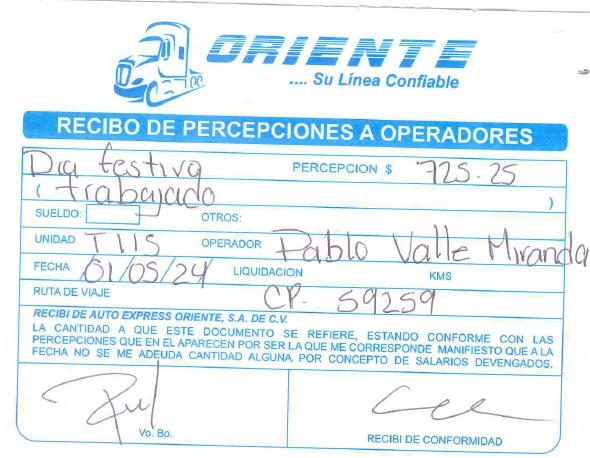 ORIENTE
.... Su Línea Confiable
RECIBO DE PERCEPCIONES A OPERADORES
Dia festivo PERCEPCION $ 725.25
( trabajado )
SUELDO: OTROS:
UNIDAD T115 OPERADOR Pablo Valle Miranda
FECHA 01/05/24 LIQUIDACION KMS
RUTA DE VIAJE CP. 59259
RECIBI DE AUTO EXPRESS ORIENTE, S.A. DE C.V.
LA CANTIDAD A QUE ESTE DOCUMENTO SE REFIERE, ESTANDO CONFORME CON LAS
PERCEPCIONES QUE EN EL APARECEN POR SER LA QUE ME CORRESPONDE MANIFIESTO QUE A LA
FECHA NO SE ME ADEUDA CANTIDAD ALGUNA POR CONCEPTO DE SALARIOS DEVENGADOS.
Vo. Bo. RECIBI DE CONFORMIDAD